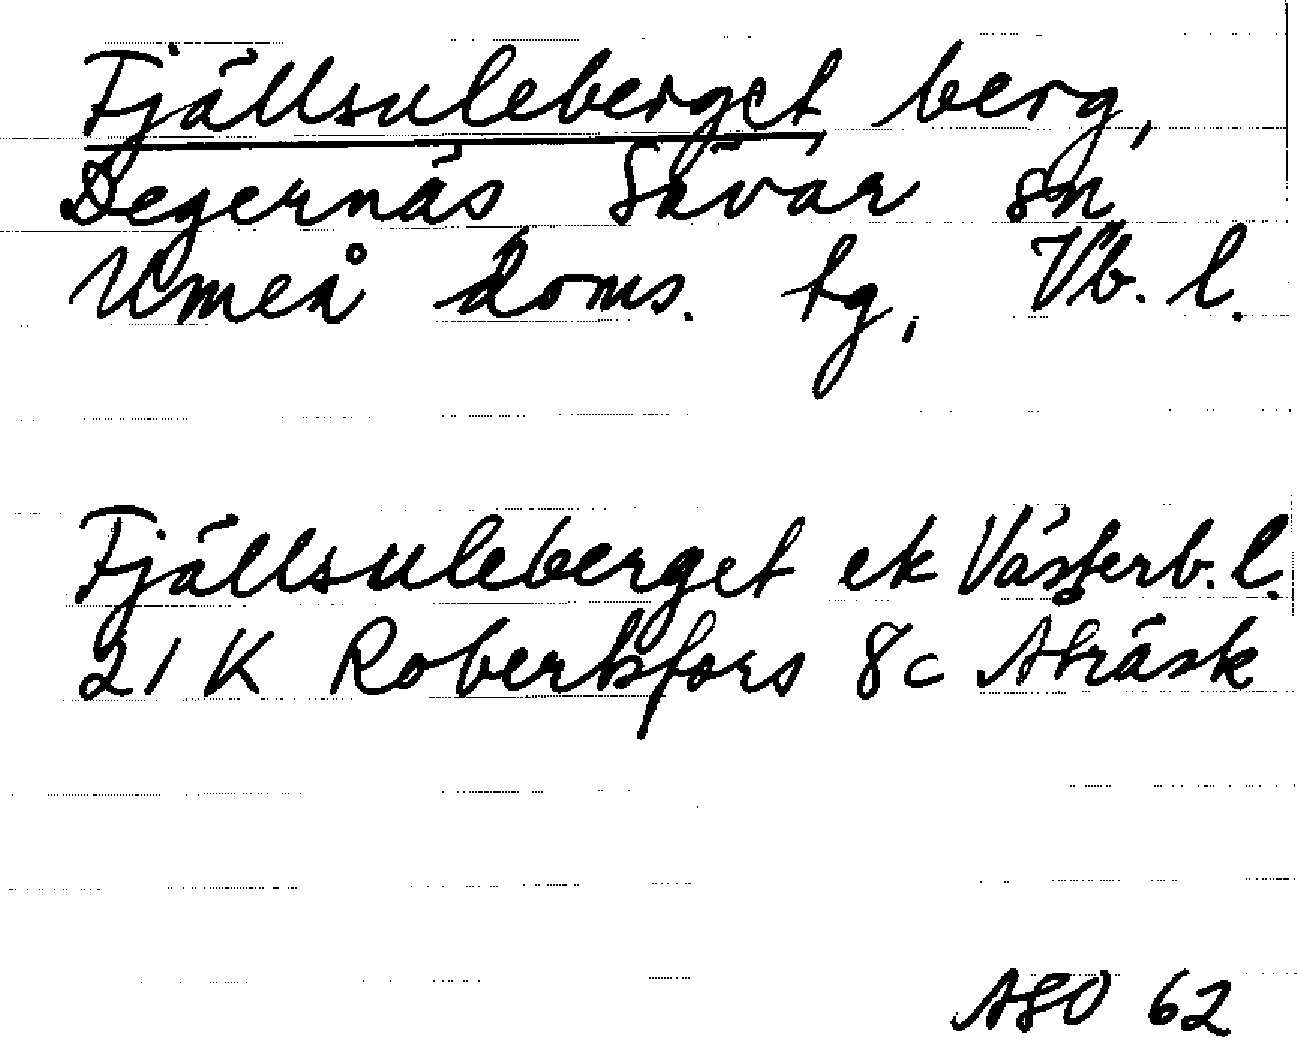 Fjällsuleberget, berg,
Degernäs Sävar sn
Umeå doms. tg, Vb. l.
Fjällsuleberget ek Västerb. l.
21 K Robertsfors 8c Åträsk
ASO 62